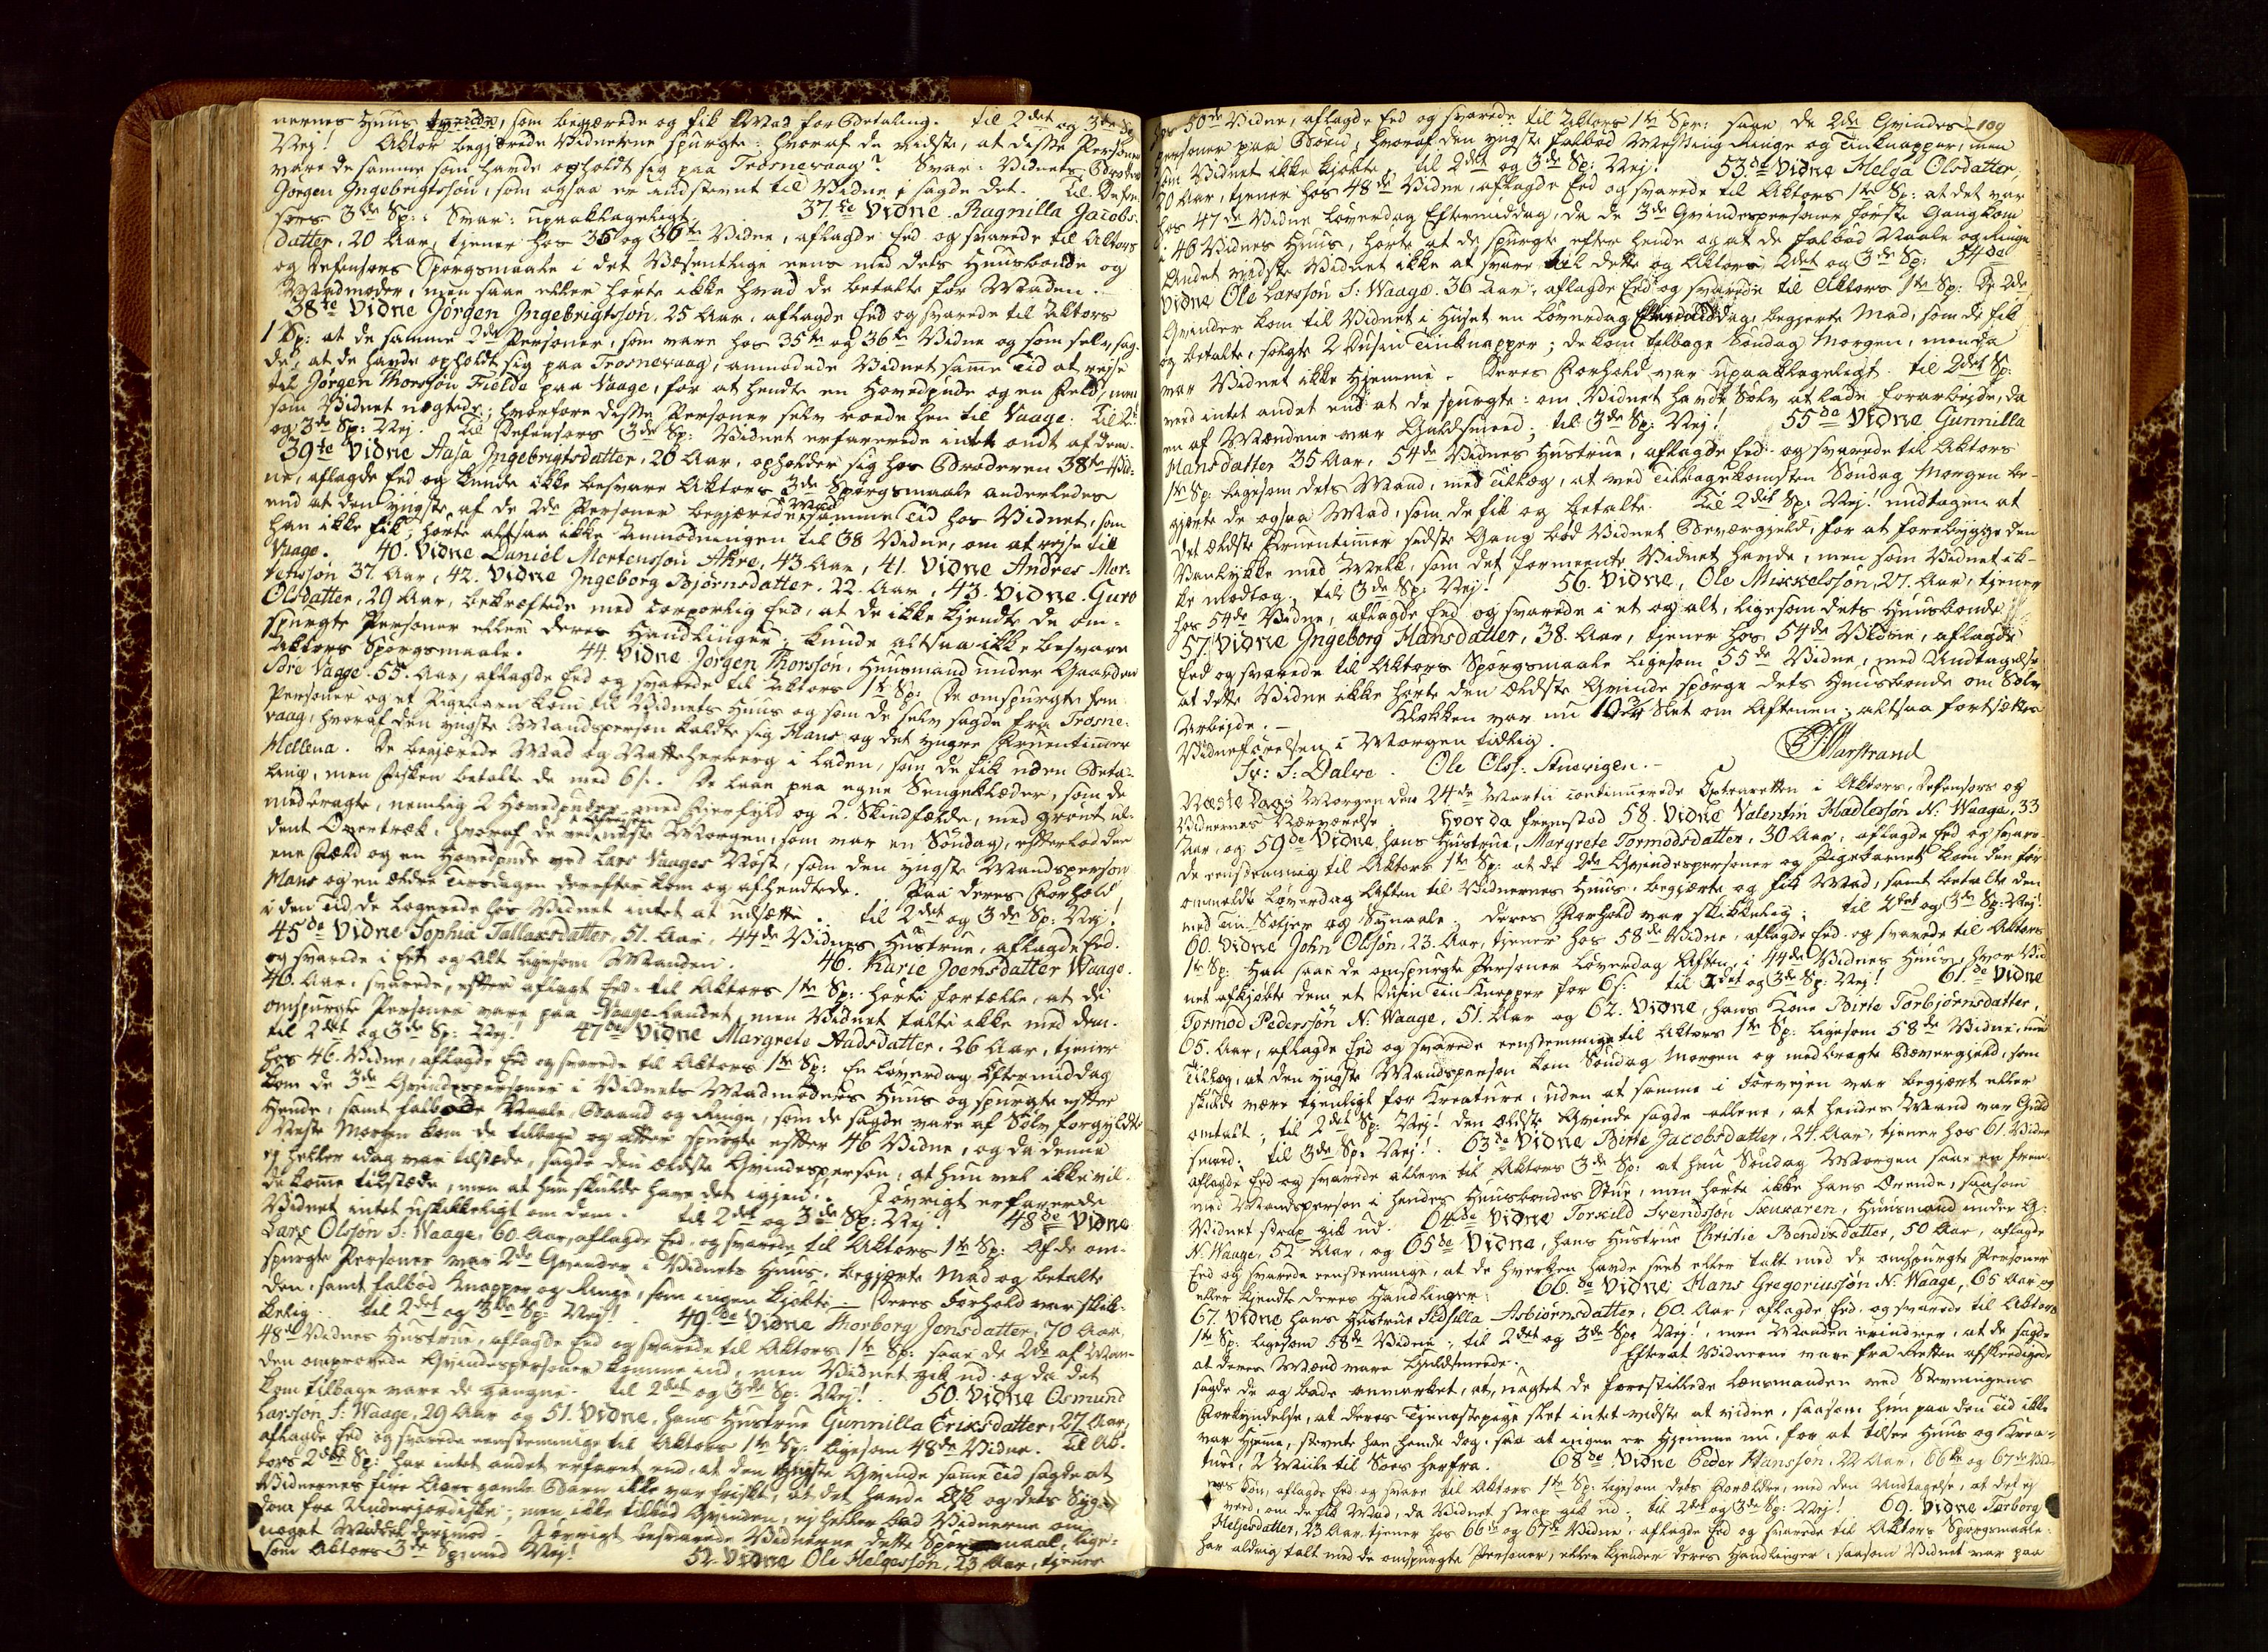 nernes Huus, som begjærede og fik Mad for Betaling. til 2det og 3de Sp:
Nej! Aktor begjærede Vidnerne spurgte: hvoraf de vidste, at disse Personer
vare de samme som havde opholdt sig paa Trosnevaag? Svar: Vidnets Broder
Jørgen Ingebrigtsøn, som ogsaa er indstevnt til Vidne sagde det. Til Defen-
sors 3de Sp: Svar: upaaklageligt. 37te Vidne Ragnilla Jacobs-
datter, 20 Aar, tjener hos 35 og 36te Vidne, aflagde Eed og svarede til Aktors
og Defensors Spørgsmaale i det Væsentlige eens med dets Huusbonde og
Madmoder, men saae eller hørte ikke hvad de betalte for Maden.
38te Vidne Jørgen Ingebrigtsøn, 25 Aar, aflagde Eed og svarede til Aktors
1 Sp: at de samme 2de Personer, som vare hos 35te og 36te Vidne og som selv sag-
de, at de havde opholdt sig paa Trosnevaag, anmodede Vidnet samme Tid at rejse
til Jørgen Thorssøn Fielde paa Vaage, for at hendte en Hovedpude og en Feld, men
som Vidnet nægtede; hvorfore disse Personer selv roede hen til Vaage. Til 2det
og 3de Sp: Nej. Til Defensors 3de Sp: Vidnet erfarerede intet ondt af dem.
39te Vidne Aasa Ingebrigtsdatter, 20 Aar, opholder sig hos Broderen 38te Vid-
ne, aflagde Eed og kunde ikke besvare Aktors 3de Spørgsmaale anderledes
end at den yngste af de 2de Personer begjærede Mad samme Tid hos Vidnet, som
han ikke fik, hørte altsaa ikke Anmodningen til 38 Vidne, om at rejse til
Vaage. 40. Vidne Daniel Mortenssøn Ahre, 43 Aar, 41. Vidne Andres Mor-
tenssøn 37. Aar, 42. Vidne Ingeborg Bjørnsdatter. 22. Aar, 43. Vidne Guro
Olsdatter, 29 Aar, bekræftede med corporlig Eed, at de ikke kjendte de om-
spurgte Personer eller deres Handlinger; kunde altsaa ikke besvare
Aktors Spørgsmaale. 44. Vidne Jørgen Thorssøn, Huusmand under Gaarden
Søre Vaage. 55. Aar, aflagde Eed og svarede til Aktors 1te Sp: De omspurgte fem
Personer og et Pigebarn kom til Vidnets Huus og som de selv sagde fra Trosne-
vaag, hvoraf den yngste Mandsperson kaldte sig Hans og det yngre Fruentimmer
Hellena. De begjærede Mad og Natteherberg i Laden, som de fik uden Beta-
ling, men Fisken betalte de med 6 s. De laae paa egne Sengeklæder, som de
medbragte, nemlig 2 Hovedpuder med Fjerfyld og 2. Skindfælde, med grønt ul-
dent Overtræk, hvoraf de ved næste Morgen, som var en Søndag, efterlod den
ene Fæld og en Hovedpude ved Lars Vaages Nøst, som den yngste Mandsperson
Hans og en ældre Tirsdagen derefter kom og afhendtede. Paa deres Forhold
i den Tid de logerede hos Vidnet intet at udsætte. til 2det og 3de Sp: Nej!
45de Vidne Sophia Tallaksdatter, 51. Aar, 44de Vidnes Hustrue, aflagde Eed
og svarede i Eet og Alt ligesom Manden. 46. Karie Joensdatter Waage.
40. Aar. svarede, efter aflagt Eed. til Aktors 1te Sp: hørte fortælle, at de
omspurgte Personer vare paa Vaage-Landet, men Vidnet talte ikke med dem.
til 2det og 3de Sp: Nej! 47de Vidne Margrete Aadsdatter, 26 Aar, tjener
hos 46. Vidne, aflagde Eed og svarede til Aktors 1te Sp: En Løverdag Eftermiddag
kom de 3de Qvindespersoner i Vidnets Madmoders Huus og spurgte efter
hende, samt falbøde Naale, Baand og Ringe, som de sagde vare af Sølv forgyldte
Næste Morgen kom de tilbage og atter spurgte efter 46 Vidne, og da denne
ej heller idag var tilstæde, sagde den ældste Qvindesperson, at hun vel ikke vil-
de komme tilstæde, men at hun skulde have det igjen. I øvrigt erfarerede
Vidnet intet uskikkeligt om dem. til 2det og 3de Sp: Nej! 48de Vidne
Lars Olssøn S: Waage, 60. Aar, aflagde Eed og svarede til Aktors 1te Sp: Af de om-
spurgte Personer var 2de Qvinder i Vidnets Huus, begjærte Mad og betalte
den, samt falbød Knapper og Ringe, som ingen kjøbte. Deres Forhold var skik-
kelig. til 2det og 3de Sp: Nej! 49de Vidne Thorborg Jensdatter, 70 Aar,
48de Vidnes Hustrue, aflagde Eed og svarede til Aktors 1te Sp: saae de 2de af
den omprovede Qvindespersoner komme ind, men Vidnet gik ud og da det
kom tilbage vare de gangne. til 2det og 3de Sp: Nej! 50. Vidne Osmund
Larssøn S: Waage, 29 Aar og 51. Vidne, hans Hustrue Gunnilla Eriksdatter, 27 Aar,
aflagde Eed og svarede eenstemmige til Aktors 1te Sp: ligesom 48de Vidne. Til Ak-
tors 2det Sp: har intet andet erfaret end, at den yngste Qvinde samme Tid sagde at
Vidnernes fire Aars gamle Barn ikke var friskt, at det havde Ilsk og dets Syg-
dom fra Underjordiske, men ikke tilbød Qvinden, ej heller bad Vidnerne om
noget Middel derimod. I øvrigt besvarede Vidnerne dette Spørgsmaal, lige-
som Aktors 3de Sp: med Nej! 52. Vidne Ole Helgessøn, 23 Aar, tjener
109
hos 50de Vidne, aflagde Eed og svarede til Aktors 1te Spr: saae de 2de Qvindes-
personer paa Boen, hvoraf den yngste falbød Messing Ringe og Tinknapper, men
som Vidnet ikke kjøbte. til 2det og 3de Sp: Nej! 53de Vidne Helga Olsdatter,
20 Aar, tjener hos 48de Vidne, aflagde Eed og svarede til Aktors 1te Sp: at det var
hos 47de Vidne Løverdag Eftermiddag, da de 3de Qvindespersoner første Gang kom
i 46 Vidnes Huus, hørte at de spurgte efter hende og at de falbød Naale og Ringe
Andet vidste Vidnet ikke at svare til dette og Aktors 2det og 3de Sp: 54de
Vidne Ole Larssøn S: Waage. 36 Aar, aflagde Eed og svarede til Aktors 1te Sp: De 2de
Qvinder kom til Vidnet i Huset en Løverdag Eftermiddag, begjerte Mad, som de fik
og betalte, solgte 2 Dusin Tinknapper; de kom tilbage Søndag Morgen, men da
var Vidnet ikke hjemme. Deres Forhold var upaaklageligt. til 2det Sp:
veed intet andet end at de spurgte: om Vidnet havde Sølv at lade forarbejde, da
en af Mændene var Guldsmed; til 3de Sp: Nej! 55de Vidne Gunnilla
Hansdatter 35 Aar, 54de Vidnes Hustrue, aflagde Eed og svarede til Aktors
1te Sp: ligesom dets Mand, med Tillæg, at ved Tilbagekomsten Søndag Morgen be-
gjerte de ogsaa Mad, som de fik og betalte. Til 2det Sp: Nej! undtagen at
det ældste Fruentimmer sidste Gang bød Vidnet Bevergjeld, for at forebygge den
Vanlykke med Melk, som det formeente Vidnet havde, men som Vidnet ik-
ke modtog. til 3de Sp: Nej! 56. Vidne, Ole Mikkelssøn, 27. Aar, tjener
hos 54de Vidne, aflagde Eed og svarede i et og alt, ligesom dets Huusbonde
57. Vidne Ingeborg Hansdatter, 38. Aar, tjener hos 54de Vidne, aflagde
Eed og svarede til Aktors Spørgsmaale ligesom 55de Vidne, med Undtagelse
at dette Vidne ikke hørte den ældste Qvinde spørge dets Huusbonde om Sølv
Arbejde. Klokken var nu 10 Slet om Aftenen, altsaa fortsættes
Vidneførelsen i Morgen tidlig. Marstrand
Sv: S: Dalve. Ole Olss:
Næste Dags Morgen den 24de Martii continuerede Extraretten i Aktors, Defensors og
Vidnernes Nærværelse. Hvorda fremstod 58. Vidne Valentin Hadlessøn N: Waage, 33
Aar, og 59de Vidne, hans Hustrue, Margrete Tormodsdatter, 30 Aar, aflagde Eed og svare-
de eenstemmig til Aktors 1te Sp: at de 2de Qvindespersoner og Pigebarnet kom den for-
ommeldte Løverdag Aften til Vidnernes Huus, begjærte og fik Mad, samt betalte den
med Tin Soljer og Synaale. Deres Forhold var skikkelig; til 2det og 3de Sp: Nej!
60. Vidne John Olssøn, 23. Aar, tjener hos 58de Vidne, aflagde Eed og svarede til Aktors
1te Sp: Han saae de omspurgte Personer Løverdag Aften, i 44de Vidnes Huus, hvor Vid-
net afkjøbte dem et Dusin Tin Knapper for 6 s: til 2det og 3de Sp: Nej! 61de Vidne
Tormod Pederssøn N: Waage, 51. Aar og 62. Vidne, hans Kone Birte Torbjørnsdatter,
65. Aar, aflagde Eed og svarede eenstemmige til Aktors 1te Sp: ligesom 58de Vidne, med
Tillæg, at den yngste Mandsperson kom Søndag Morgen og medbragte Bævergjeld, som
skulde være tjenligt for Kreature, uden at samme i Forvejen var begjært eller
omtalt; til 2det Sp: Nej! den ældste Qvinde sagde allene, at hendes Mand var Guld
smed; til 3de Sp: Nej! 63de Vidne Birte Jacobsdatter, 24. Aar, tjener hos 61. Vidne
aflagde Eed og svarede allene til Aktors 3de Sp: at hun Søndag Morgen saae en frem-
med Mandsperson i hendes Huusbondes Stue, men hørte ikke hans Ærende, saasom
Vidnet strax gik ud. 64de Vidne Torkild Svendssøn, Huusmand under G:
N: Waage, 52 Aar, og 65de Vidne, hans Hustrue Christie Bendixdatter, 50 Aar, aflagde
Eed og svarede eenstemmige, at de hverken havde seet eller talt med de omspurgte Personer
eller kjendte deres Handlinger. 66de Vidne Hans Gregoriussøn N: Waage, 65 Aar og
67. Vidne hans Hustrue Sidsilla Asbiørnsdatter, 60. Aar, aflagde Eed og svarede til Aktors
1te Sp: ligesom 58de Vidne; til 2det og 3de Sp: Nej!, men Manden erindrer, at de sagde
at deres Mænd vare Guldsmede. Efterat Vidnerne vare fra Retten afskeedigede
sagde de og bade anmærket, at, uagtet de forestillede Lænsmanden ved Stevningens
Forkyndelse, at deres Tjenestepige slet intet vidste at vidne, saasom hun paa den Tid ikke
var hjemme, stevnte han hende dog, saa at ingen er hjemme nu, for at tilsee Huus og Krea-
ture, 2 Miile til Søes herfra. 68de Vidne Peder Hanssøn, 22 Aar, 66te og 67de Vid-
nes Søn, aflagde Eed og svare til Aktors 1te Sp: ligesom dets Forældre, med den Undtagelse, at det ej
veed, om de fik Mad, da Vidnet strax gik ud; til 2det og 3de Sp: Nej! 69. Vidne Torborg
Heljesdatter, 23 Aar, tjener hos 66te og 67de Vidne, aflagde Eed og svarede til Aktors Spørgsmaale:
har aldrig talt med de omspurgte Personer, eller kjender deres Handlinger, saasom Vidnet var paa